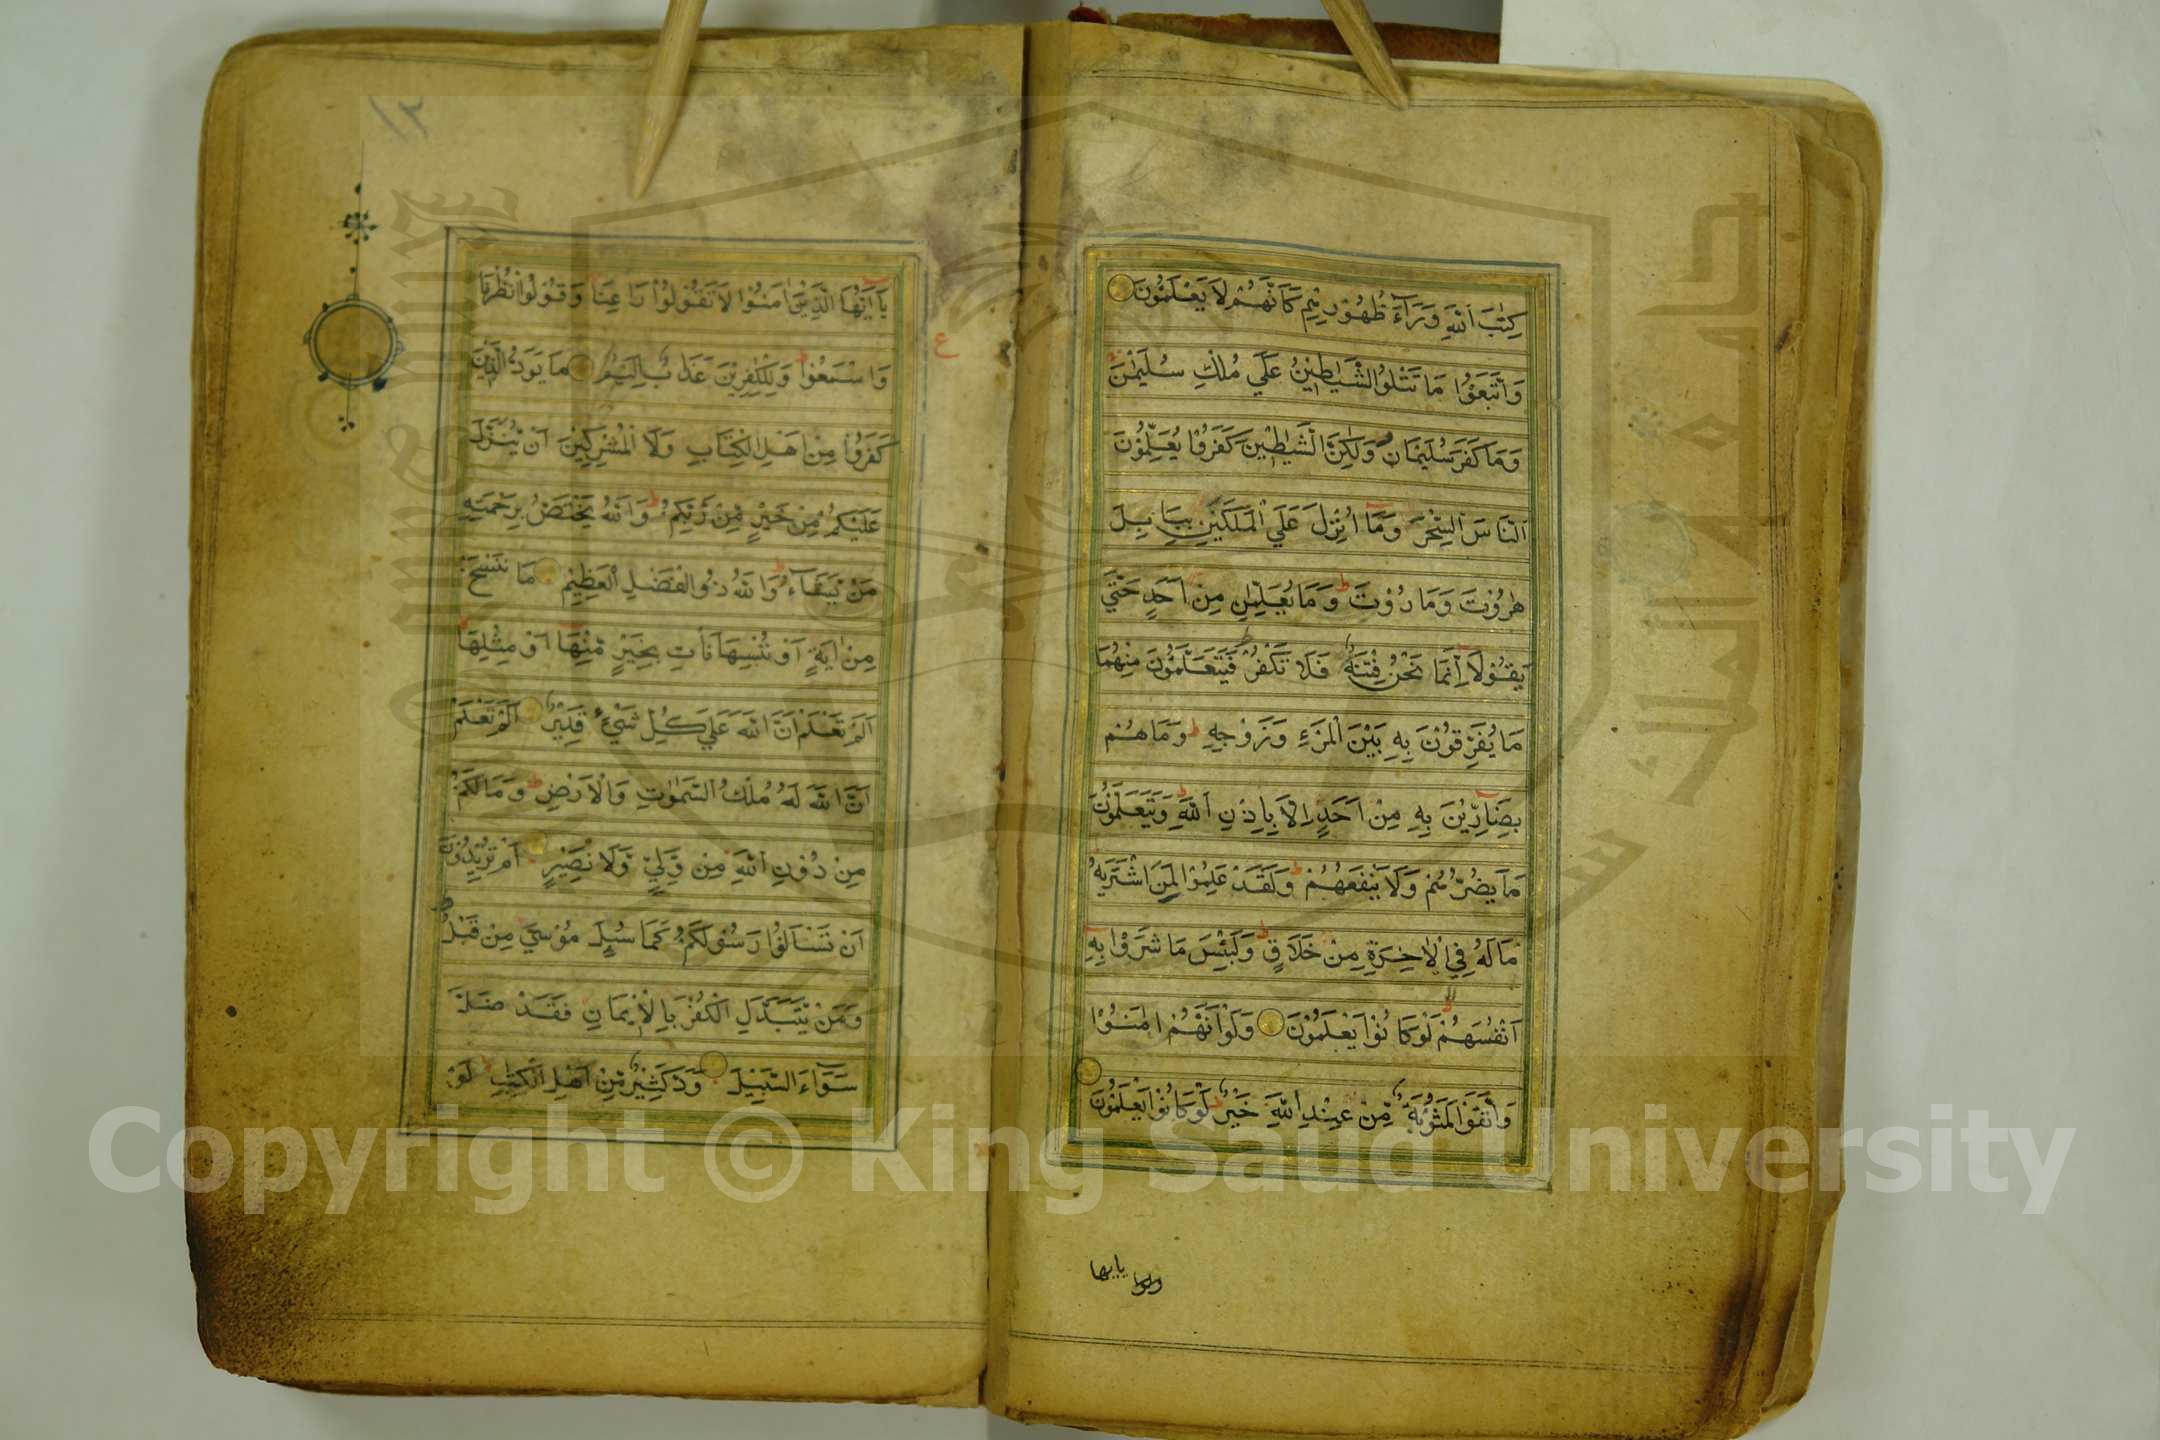 كِتٰبَ اللّٰهِ وَرَآءَ ظُهُوْرِهِمْ كَاَنَّهُمْ لَا يَعْلَمُوْنَ
وَاتَّبَعُوْا مَا تَتْلُوا الشَّيَاطِيْنُ عَلٰي مُلْكِ سُلَيْمٰنَ
وَمَا كَفَرَ سُلَيْمَانُ وَلٰكِنَّ الشَّيَاطِيْنَ كَفَرُوْا يُعَلِّمُوْنَ
النَّاسَ السِّحْرَ وَمَآ اُنْزِلَ عَلَي الْمَلَكَيْنِ بِبَابِلَ
هٰرُوْتَ وَمَارُوْتَ ط وَمَا يُعَلِّمٰنِ مِنْ اَحَدٍ حَتّٰي
يَقُوْلَآ اِنَّمَا نَحْنُ فِتْنَةٌ فَلَا تَكْفُرْ ط فَيَتَعَلَّمُوْنَ مِنْهُمَا
مَا يُفَرِّقُوْنَ بِهِ بَيْنَ الْمَرْءِ وَزَوْجِهِ ط وَمَا هُمْ
بِضَآرِّيْنَ بِهِ مِنْ اَحَدٍ اِلَّا بِاِذْنِ اللّٰهِ ط وَيَتَعَلَّمُوْنَ
مَا يَضُرُّهُمْ وَلَا يَنْفَعُهُمْ ط وَلَقَدْ عَلِمُوْا لَمَنِ اشْتَرٰيهُ
مَا لَهُ فِي الْاٰخِرَةِ مِنْ خَلَاقٍ ط وَلَبِئْسَ مَا شَرَوْا بِهِ
اَنْفُسَهُمْ لَوْ كَانُوْا يَعْلَمُوْنَ وَلَوْ اَنَّهُمْ اٰمَنُوْا
وَاتَّقَوْا لَمَثُوْبَةٌ مِّنْ عِنْدِ اللّٰهِ خَيْرٌ ط لَوْ كَانُوْا يَعْلَمُوْنَ
يايها
١٢
ع
يَآ اَيُّهَا الَّذِيْنَ اٰمَنُوْا لَا تَقُوْلُوْا رَاعِنَا وَقُوْلُوا انْظُرْنَا
وَاسْمَعُوْا ط وَلِلْكٰفِرِيْنَ عَذَابٌ اَلِيْمٌ مَا يَوَدُّ الَّذِيْنَ
كَفَرُوْا مِنْ اَهْلِ الْكِتَابِ وَلَا الْمُشْرِكِيْنَ اَنْ يُّنَزَّلَ
عَلَيْكُمْ مِّنْ خَيْرٍ مِّنْ رَّبِّكُمْ ط وَاللّٰهُ يَخْتَصُّ بِرَحْمَتِهِ
مَنْ يَّشَآءُ ط وَاللّٰهُ ذُو الْفَضْلِ الْعَظِيْمِ مَا نَنْسَخْ
مِنْ اٰيَةٍ اَوْ نُنْسِهَا نَأْتِ بِخَيْرٍ مِّنْهَآ اَوْ مِثْلِهَا ط
اَلَمْ تَعْلَمْ اَنَّ اللّٰهَ عَلٰي كُلِّ شَيْءٍ قَدِيْرٌ اَلَمْ تَعْلَمْ
اَنَّ اللّٰهَ لَهُ مُلْكُ السَّمٰوٰتِ وَالْاَرْضِ ط وَمَا لَكُمْ
مِنْ دُوْنِ اللّٰهِ مِنْ وَّلِيٍّ وَّلَا نَصِيْرٍ اَمْ تُرِيْدُوْنَ
اَنْ تَسْـَٔالُوْا رَسُوْلَكُمْ كَمَا سُئِلَ مُوْسٰي مِنْ قَبْلُ ط
وَمَنْ يَّتَبَدَّلِ الْكُفْرَ بِالْاِيْمَانِ فَقَدْ ضَلَّ
سَوَآءَ السَّبِيْلِ وَدَّ كَثِيْرٌ مِّنْ اَهْلِ الْكِتٰبِ لَوْ
Copyright © King Saud University